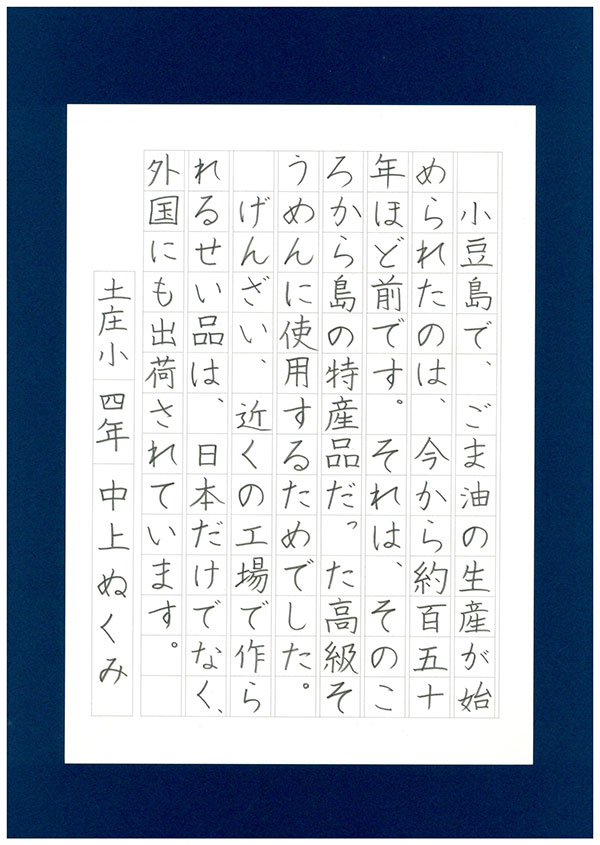 小豆島で、ごま油の生産が始
められたのは、今から約百五十
年ほど前です。それは、そのこ
ろから島の特産品だった高級そ
うめんに使用するためでした。
げんざい、近くの工場で作ら
れるせい品は、日本だけでなく、
外国にも出荷されています。
土庄小 四年 中上ぬくみ